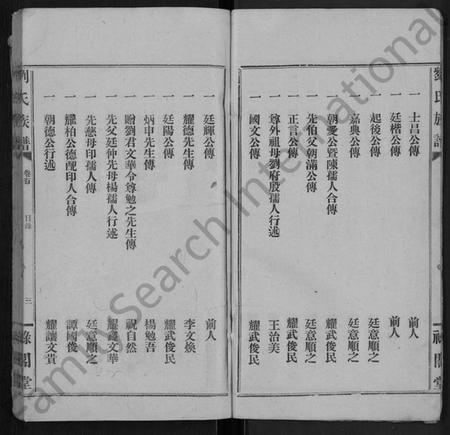 劉氏族譜
祿閣堂
一 士昌公傳 前人
一 廷楷公傳 前人
一 起後公傳 廷意順之
一 嘉典公傳 廷意順之
一 朝愛公暨陳孺人合傳 耀武俊民
一 先伯父朝滿公傳 廷意順之
一 正言公傳 耀武俊民
一 尊外祖母劉府殷孺人行述 王治美
一 國文公傳 耀武俊民
一 廷輝公傳 前人
一 耀德先生傳 李文煥
一 廷陽公傳 耀武俊民
一 炳申先生傳 楊勉吾
一 盼劉君文華令尊勉之先生傳 祝自然
一 先父廷仲先母楊孺人行述 耀錢文華
一 先慈母印孺人傳 廷意順之
一 耀柏公德配印人合傳 譚國俊
一 朝德公行述 耀讓文貴
劉氏族譜 卷首 目錄 三 祿閣堂
FamilySearch International